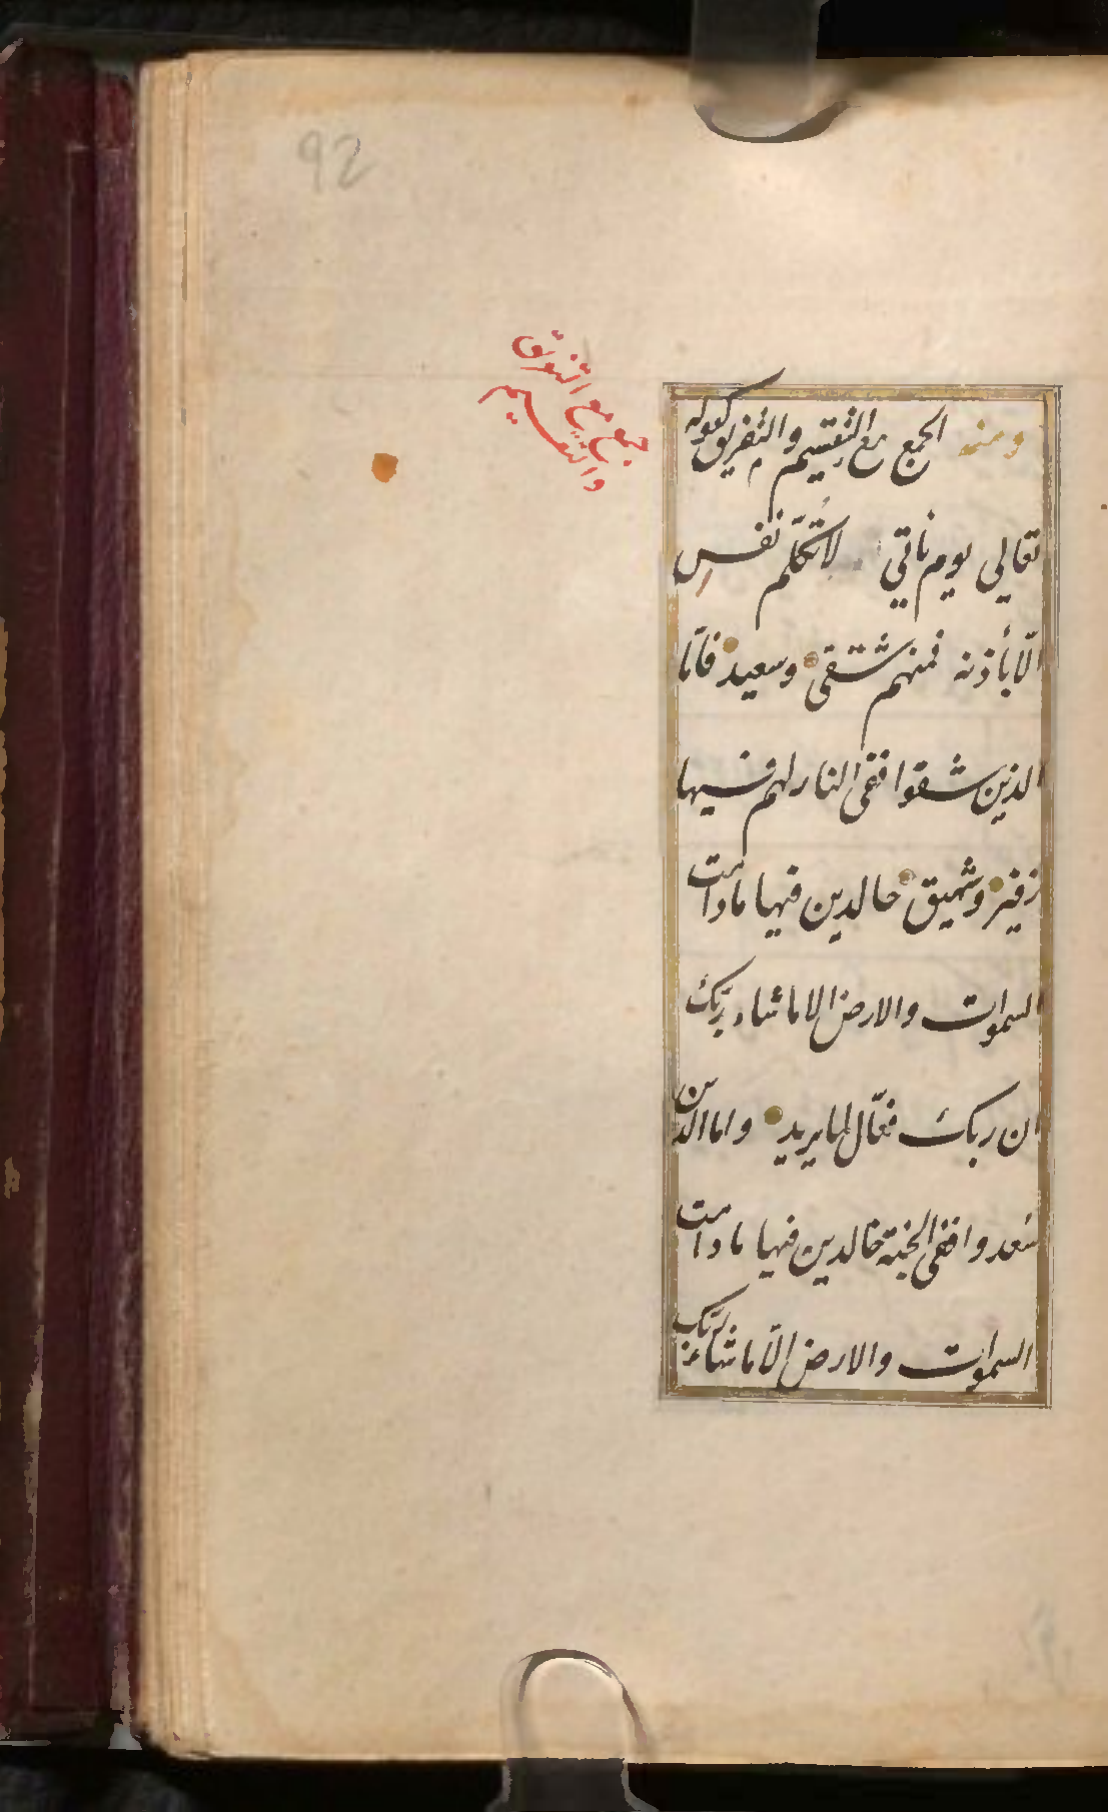 92
جمع مع التفريق
والتقسيم
ومنه الجمع مع التقسيم والتفريق كقوله
تعالى يوم ناتي لا تكلّم نفس
الّا بأذنه فمنهم شقى وسعيد فامّا
الذين شقوا ففى النار لهم فيها
زفير وشهيق خالدين فيها مادامت
السموات والارض الا ماشاء ربّك
ان ربك فعّال لما يريد واما الذين
سُعدوا ففى الجنة خالدين فيها مادامت
السموات والارض الّا ماشاء ربّك